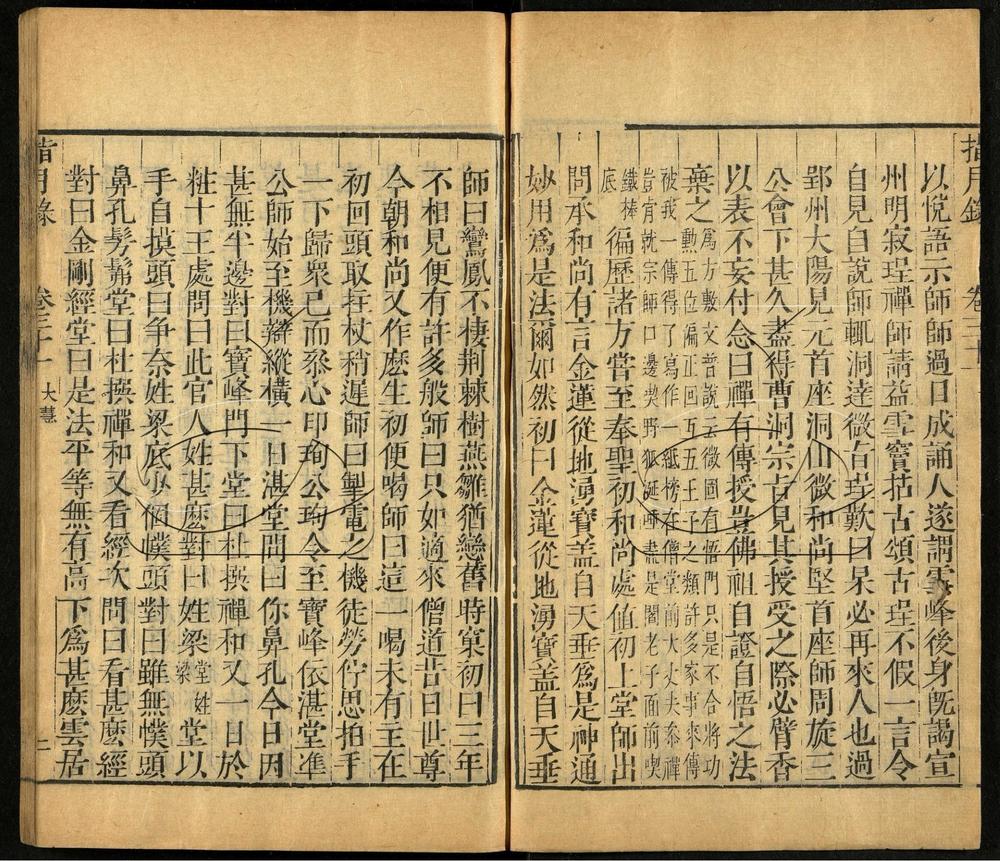 指月錄 卷三十一
以悅語示師師過目成誦人遂謂雲峰後身既謁宣
州明寂珵禪師請益雪竇拈古頌古珵不假一言令
自見自說師輒洞達微旨珵歎曰杲必再來人也過
郢州大陽見元首座洞山微和尚堅首座師周旋三
公會下甚久盡得曹洞宗旨見其授受之際必臂香
以表不妄付念曰禪有傳授豈佛祖自證自悟之法
棄之為方敷文普說云微圓有悟門只是不合將功
勳五位偏正回互五王子之類許多家事來傳
被我一傳得了寫作一紙榜在僧堂前大丈夫參禪
豈肯就宗師口邊喫野狐涎唾盡是閻老子面前喫
鐵棒
底徧歷諸方嘗至奉聖初和尚處值初上堂師出
問承和尚有言金蓮從地湧寶盖自天垂為是神通
妙用為是法爾如然初曰金蓮從地湧寶盖自天垂
師曰鸞鳳不棲荆棘樹燕雛猶戀舊時窠初曰三年
不相見便有許多般師曰只如適來僧道昔日世尊
今朝和尚又作麽生初便喝師曰這一喝未有主在
初回頭取拄杖稍遲師曰掣電之機徒勞佇思拍手
一下歸衆已而叅心印珣公珣令至寶峰依湛堂凖
公師始至機辯縱橫一日湛堂問曰你鼻孔今日因
甚無半邊對曰寶峰門下堂曰杜撰禪和又一日於
粧十王處問曰此官人姓甚麽對曰姓梁堂姓
梁堂以
手自摸頭曰争奈姓梁底少個幞頭對曰雖無幞頭
鼻孔髣髴堂曰杜撰禪和又看經次問曰看甚麽經
對曰金剛經堂曰是法平等無有高下為甚麽雲居
指月錄 卷三十一 大慧 二